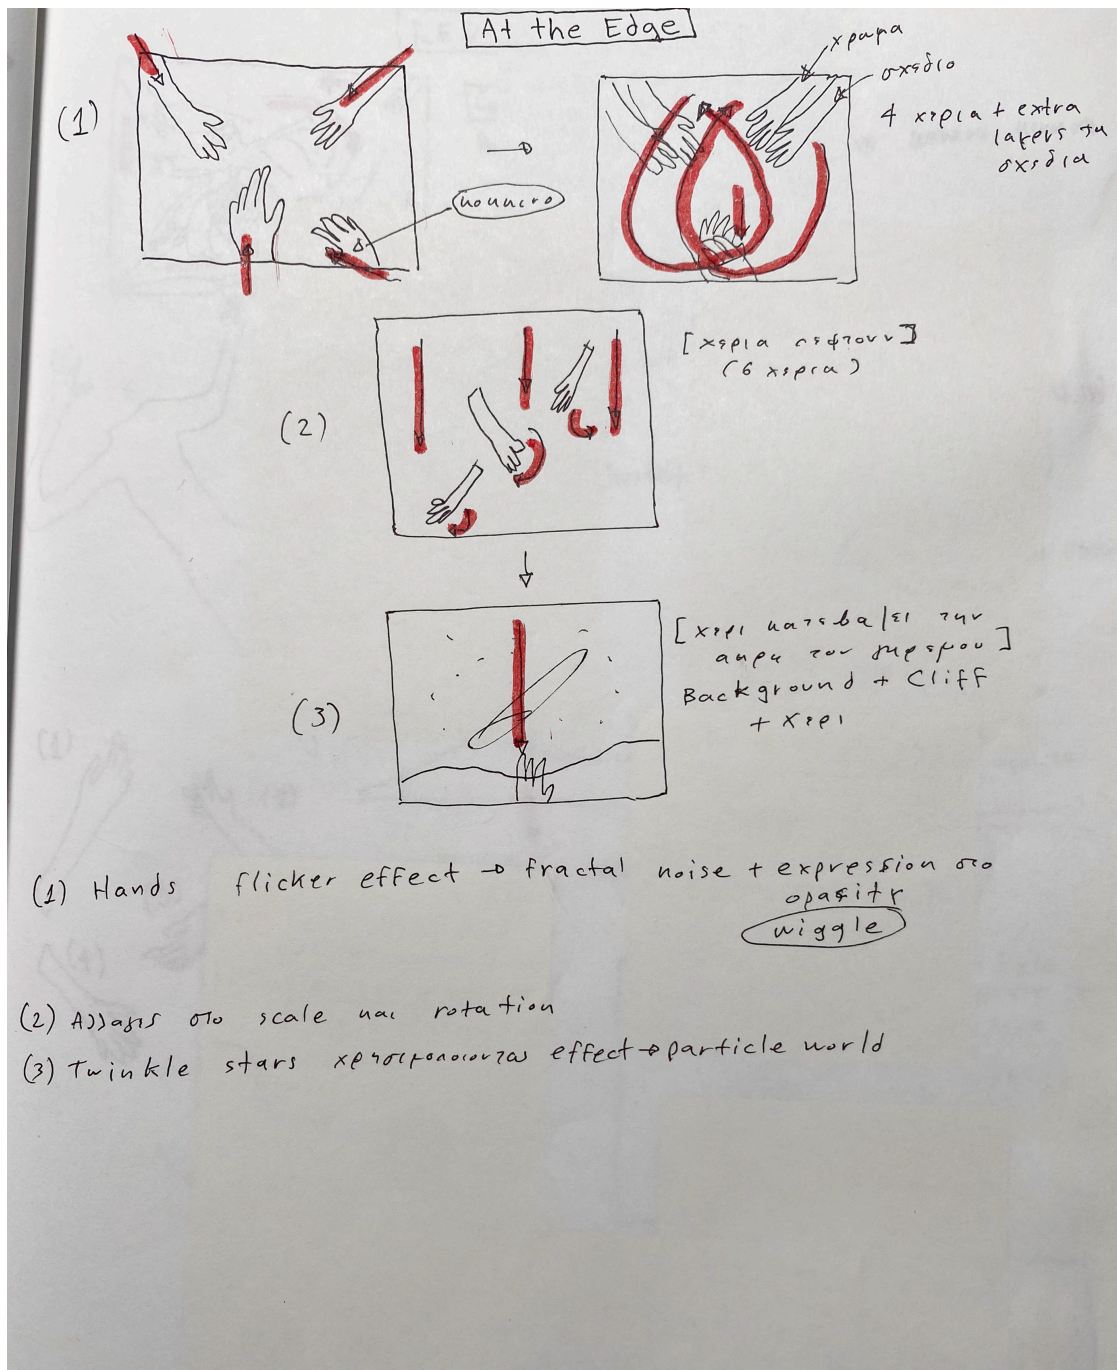 At the Edge
(1)
χρωμα
σχεδιο
4 χερια + extra
layers τα
σχεδια
κοκκινο
[χερια πεφτουν]
(6 χερια)
(2)
[χερι κατεβαζει την
ακρη του γκρεμου]
Background + Cliff
+ χερι
(3)
(1) Hands flicker effect → fractal noise + expression στο
opasity
wiggle
(2) Αλλαγες στο scale και rotation
(3) Twinkle stars χρησιμοποιουντας effect → particle world